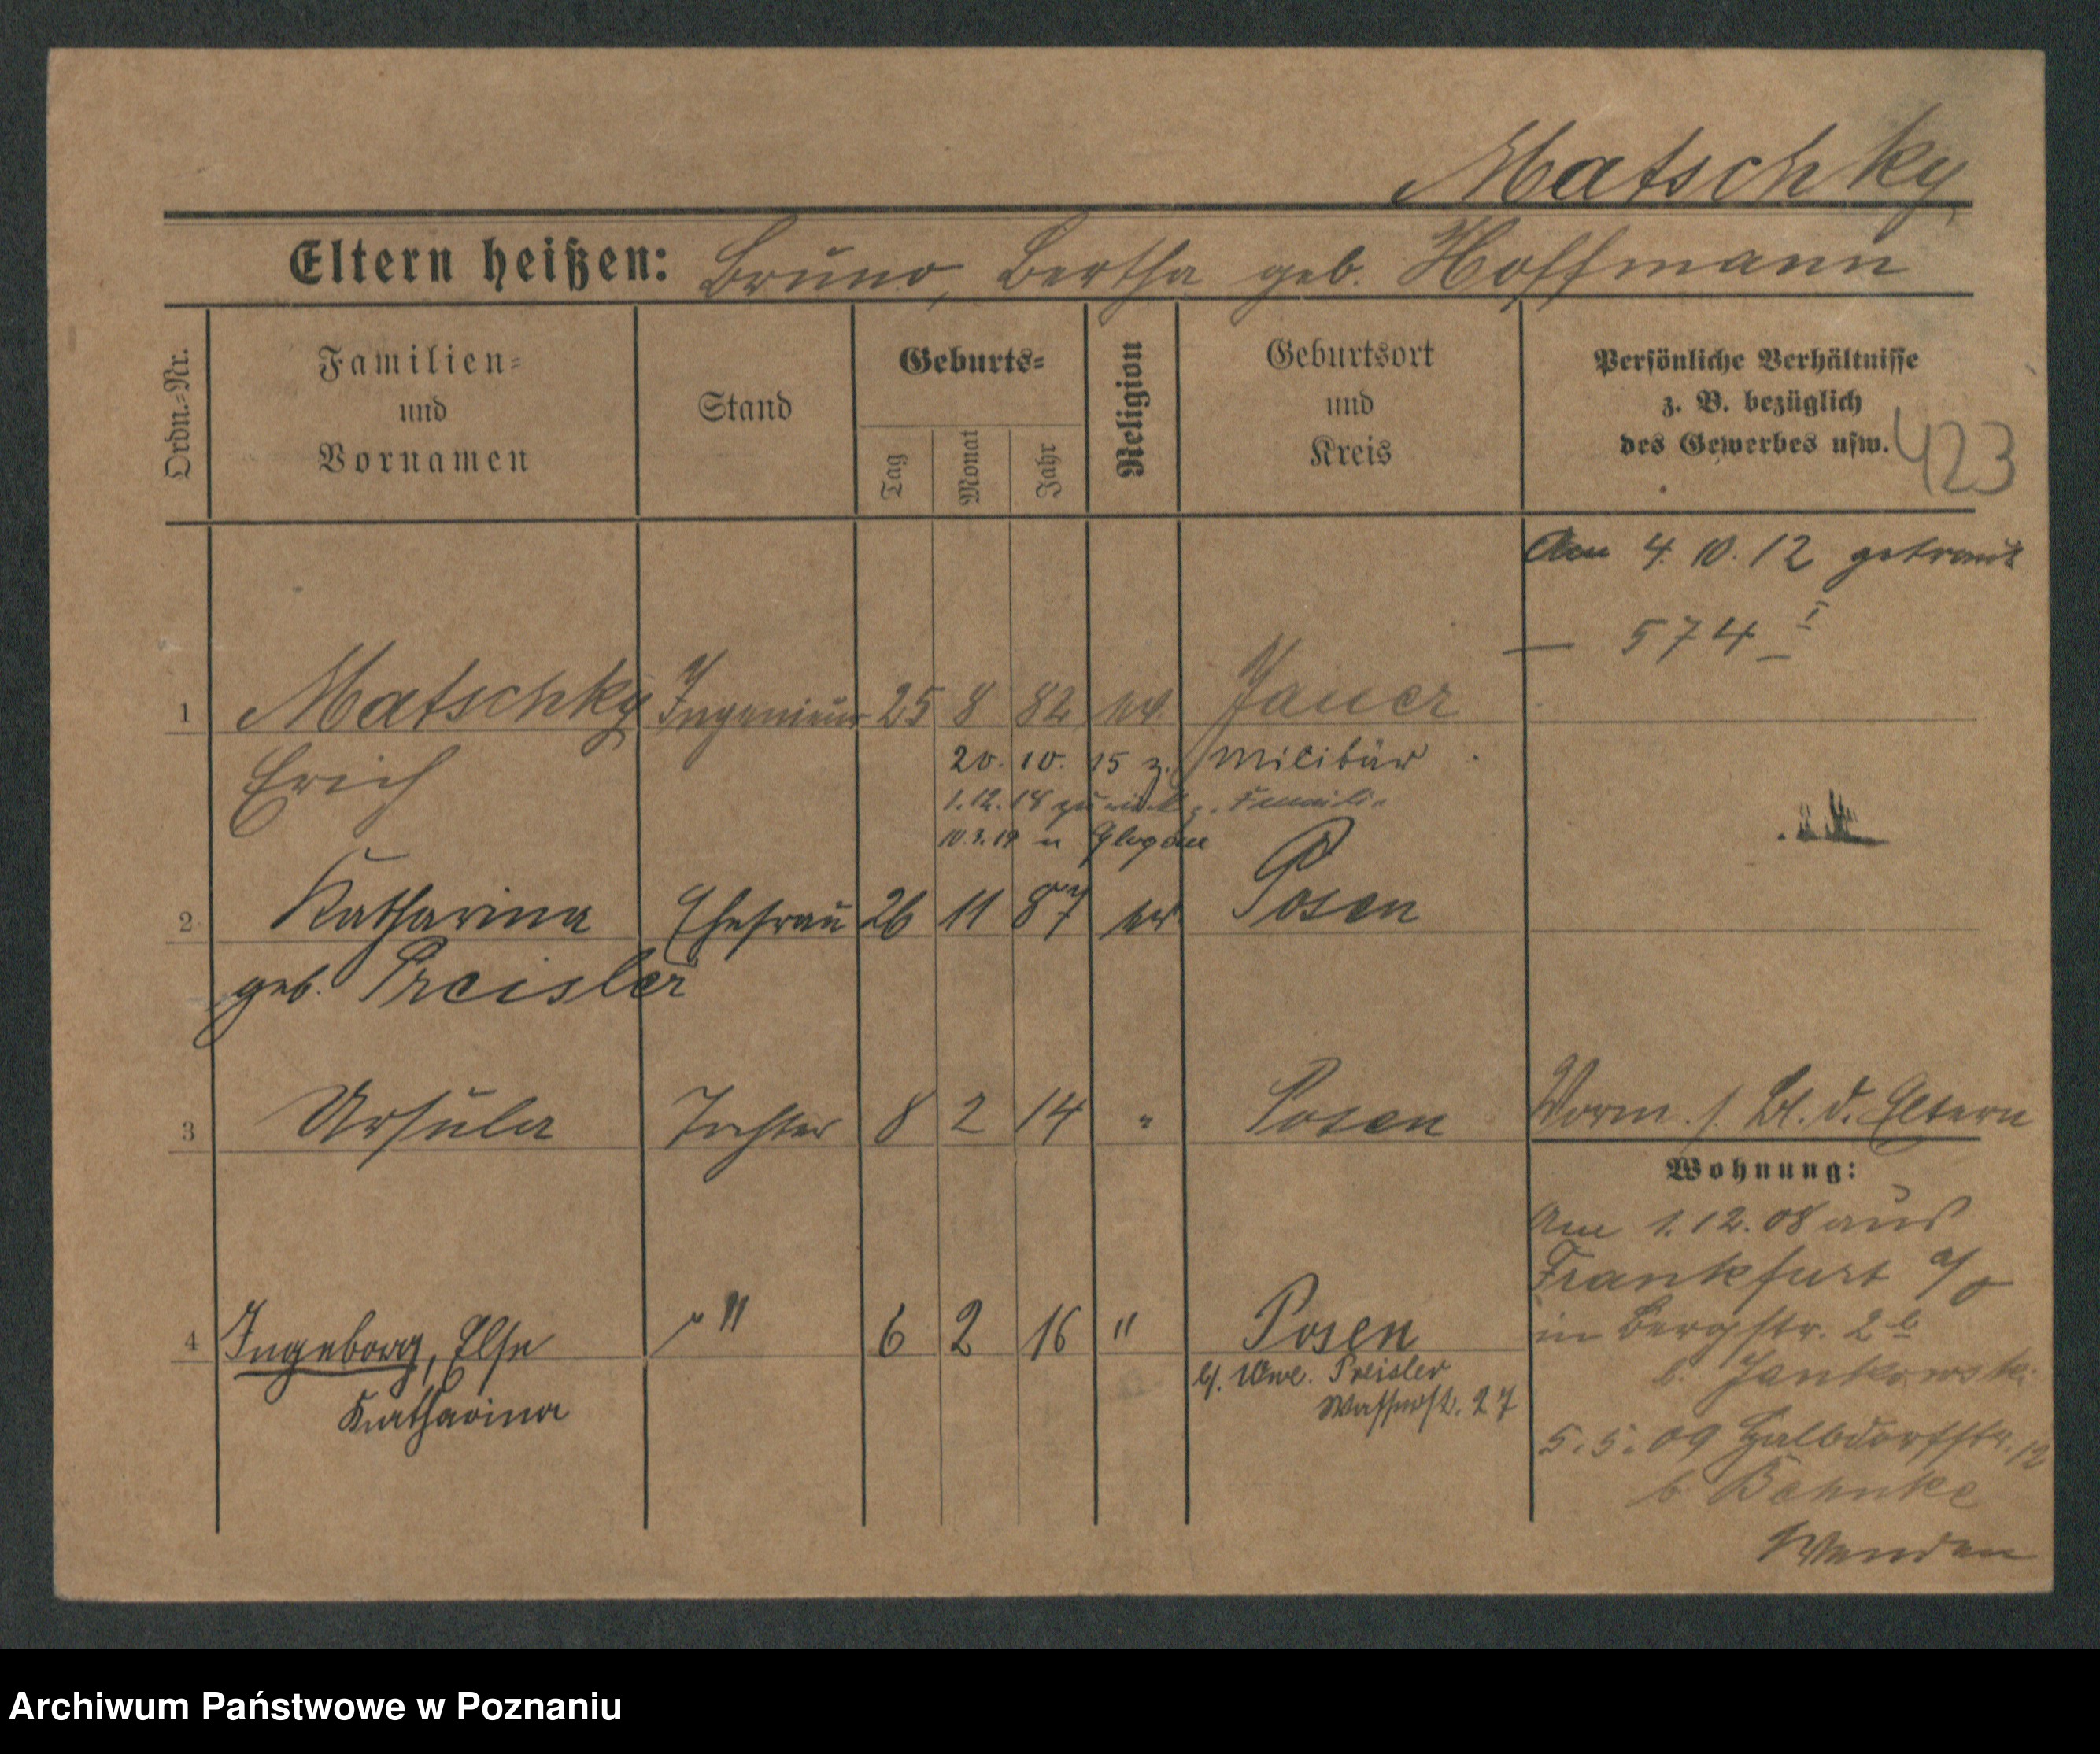 Matschky
Eltern heißen: Bruno, Bertha geb. Hoffmann
Ordn.-Nr.
Familien-
und
Vornamen
Stand
Geburts-
Tag
Monat
Jahr
Religion
Geburtsort
und
Kreis
Persönliche Verhältnisse
z. B. bezüglich
des Gewerbes usw.
423
Am 4. 10. 12 getraut
— 574 I
1 Matschky Ingenieur 25 8 82 ev. Jauer
Erich
20. 10. 15 z. Militär
1.12.18 zurück z. Familie
10.3.19 n Glogau
2 Katharina Ehefrau 26 11 87 ev. Posen
geb. Preisler
3 Ursula Tochter 8 2 14 " Posen
Vorm. f. Bl. d. Eltern
Wohnung:
Am 1.12.08 aus
Frankfurt a/O
in Bergstr. 2b
b. Jankowski
4 Ingeborg, Else " 6 2 16 " Posen
Katharina
b/. Wwe. Preisler
Wasserst. 27
5.5.09 Halbdorfstr. 12
b. Behnke
Wenden
Archiwum Państwowe w Poznaniu